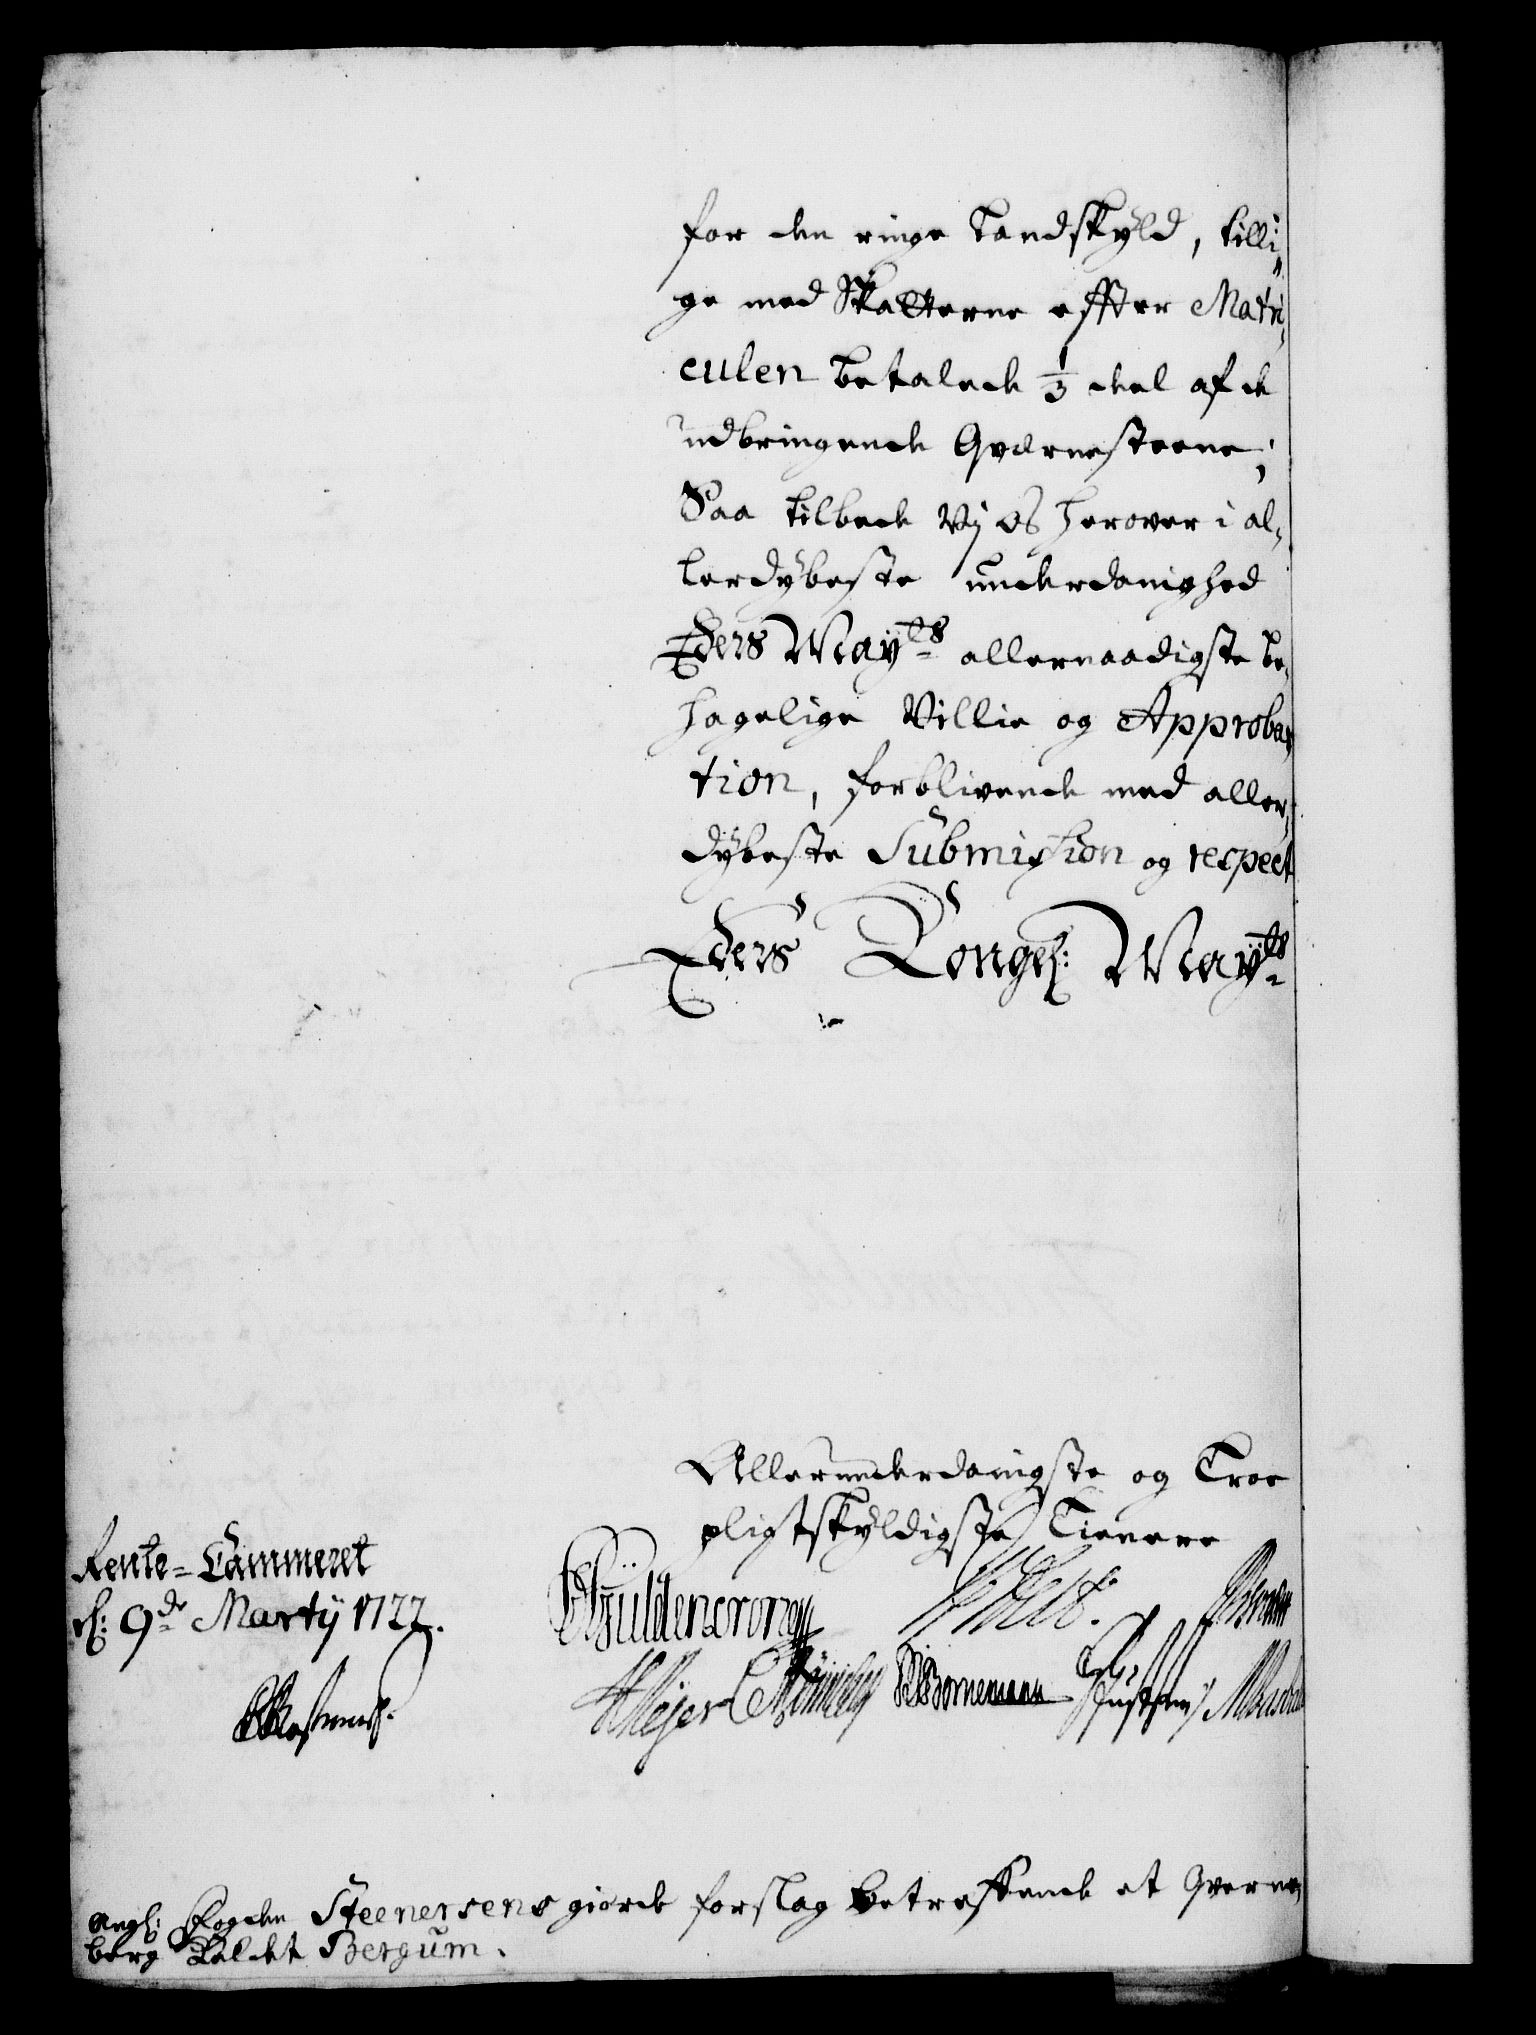 for den ringe Landskyld, tilli-
ge med Skatterne effter Matri-
culen betalede 1/3 deel af de
udbringende Qværnesteene;
Saa tilbede Vj os herover i al-
lerdybeste underdanighed
Eders Mayts allernaadigste be-
hagelige Villie og Approba-
tion, forblivende med aller-
dybeste Submission og respect
Eders Kongel: Mayts
Allerunderdanigste og Troe
pligtskyldigste Tienere
Rente-Cammeret
d: 9de Martij 1722.
Güldencrone
Meyer Bornemann
Angl: Fogden Steenersens giorde forslag betreffende et Qverne-
berg kaldet Bergum.